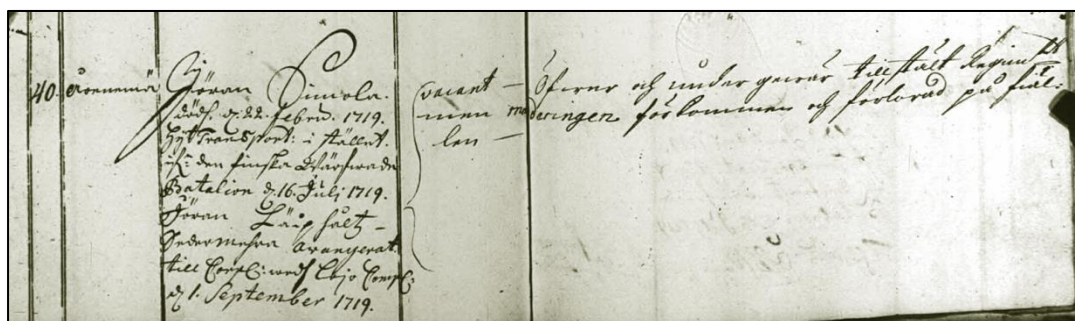 40. Göran Simola.
död d. 22. febru. 1719.
Transport: i stället.
den finska Wärfwade
Batalion d. 16. Julj 1719.
Göran
Sedermehra avangerat
till Corpl: Lojo Comp:
d 1. September 1719.
vacant —
men
len —
Öfrer och under gewär tillstält Regim
munderingen förkommen och förlorad på fiäl: